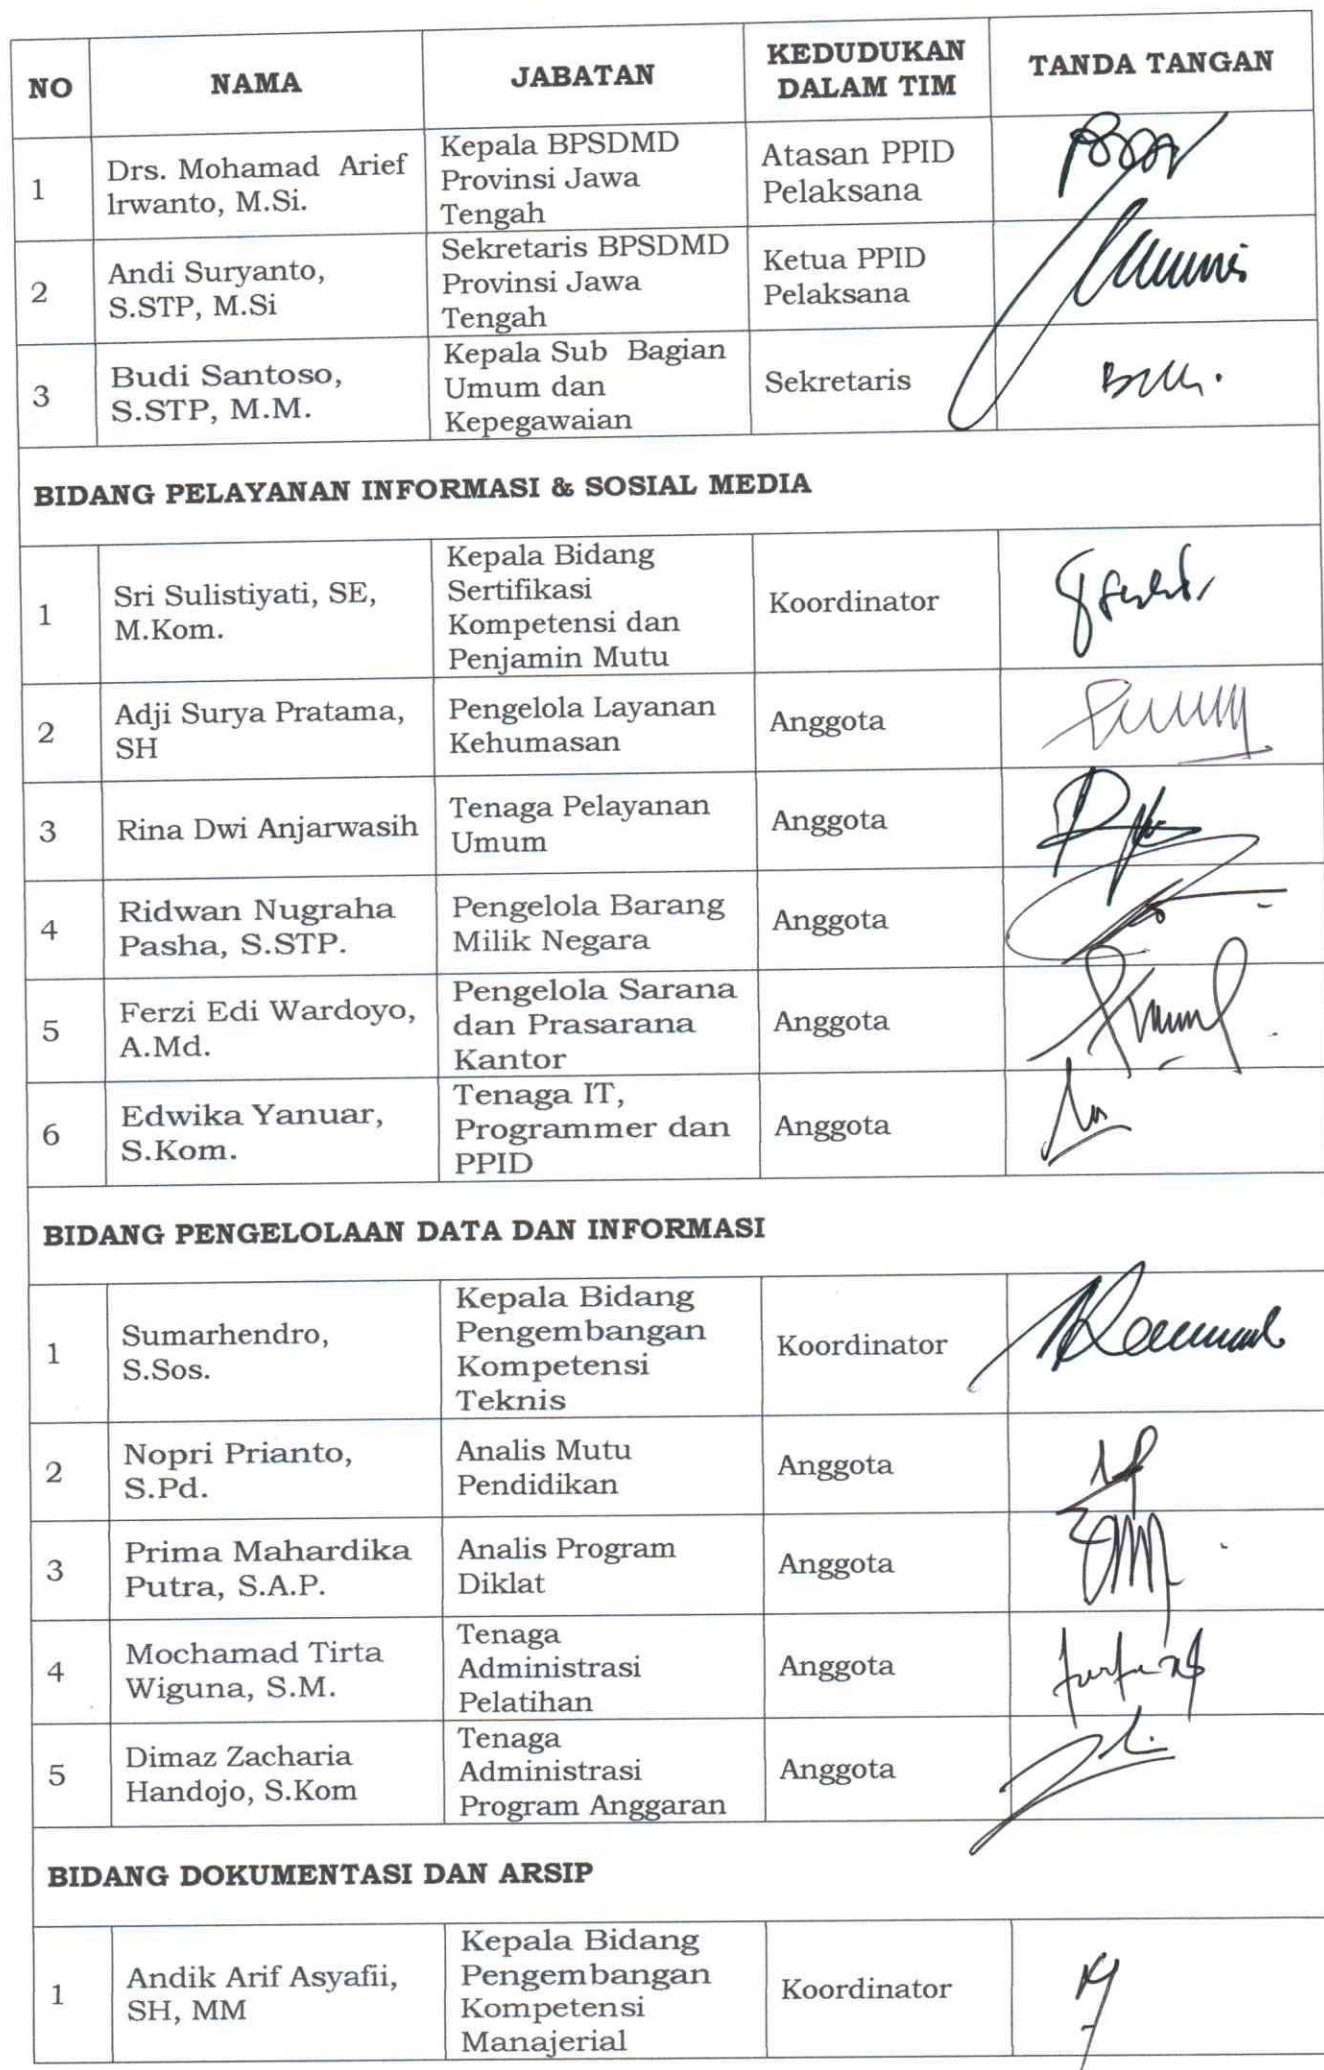 NO NAMA JABATAN KEDUDUKAN DALAM TIM TANDA TANGAN
1 Drs. Mohamad Arief Irwanto, M.Si. Kepala BPSDMD Provinsi Jawa Tengah Atasan PPID Pelaksana
2 Andi Suryanto, S.STP, M.Si Sekretaris BPSDMD Provinsi Jawa Tengah Ketua PPID Pelaksana
3 Budi Santoso, S.STP, M.M. Kepala Sub Bagian Umum dan Kepegawaian Sekretaris
BIDANG PELAYANAN INFORMASI & SOSIAL MEDIA
1 Sri Sulistiyati, SE, M.Kom. Kepala Bidang Sertifikasi Kompetensi dan Penjamin Mutu Koordinator
2 Adji Surya Pratama, SH Pengelola Layanan Kehumasan Anggota
3 Rina Dwi Anjarwasih Tenaga Pelayanan Umum Anggota
4 Ridwan Nugraha Pasha, S.STP. Pengelola Barang Milik Negara Anggota
5 Ferzi Edi Wardoyo, A.Md. Pengelola Sarana dan Prasarana Kantor Anggota
6 Edwika Yanuar, S.Kom. Tenaga IT, Programmer dan PPID Anggota
BIDANG PENGELOLAAN DATA DAN INFORMASI
1 Sumarhendro, S.Sos. Kepala Bidang Pengembangan Kompetensi Teknis Koordinator
2 Nopri Prianto, S.Pd. Analis Mutu Pendidikan Anggota
3 Prima Mahardika Putra, S.A.P. Analis Program Diklat Anggota
4 Mochamad Tirta Wiguna, S.M. Tenaga Administrasi Pelatihan Anggota
5 Dimaz Zacharia Handojo, S.Kom Tenaga Administrasi Program Anggaran Anggota
BIDANG DOKUMENTASI DAN ARSIP
1 Andik Arif Asyafii, SH, MM Kepala Bidang Pengembangan Kompetensi Manajerial Koordinator